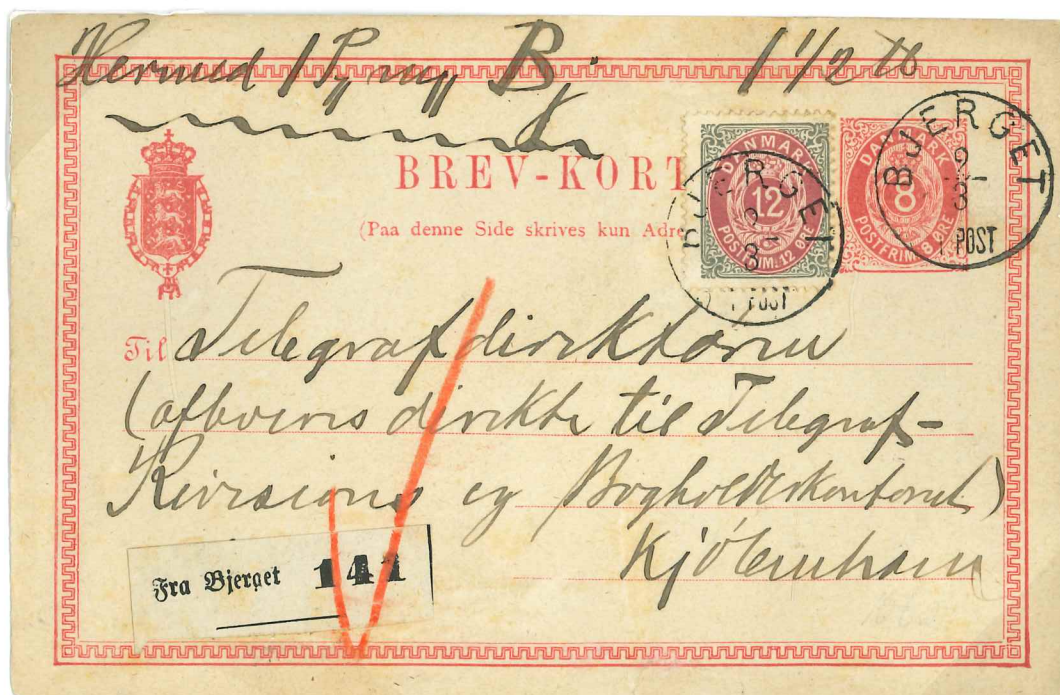 Hermed 1 Pk mrk B. 1 1/2 ℔
BREV-KORT
(Paa denne Side skrives kun Adre
DANMARK
12
POSTFRIM. 12 ØRE
DANMARK
8
POSTFRIM. 8 ØRE
BJERGET
2
3
1 POST
BJERGET
2
3
1 POST
Til Telegrafdirektøren
(afleveres direkte til Telegraf-
Revisions og Bogholderkontoret)
Kjøbenhavn
Fra Bjerget 141